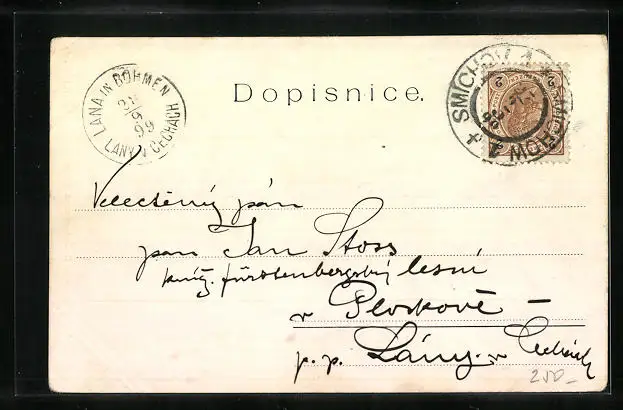 LANA IN BÖHMEN
21/9
99
LANY V ČECHÁCH
Dopisnice.
SMICHOW 1
SMICHOW 1
2 2
Velectěný pán
pan Jan Stoss
kníž. fürstenbergský lesní
v Ploskově –
p. p. Lány. v Čechách
250 –